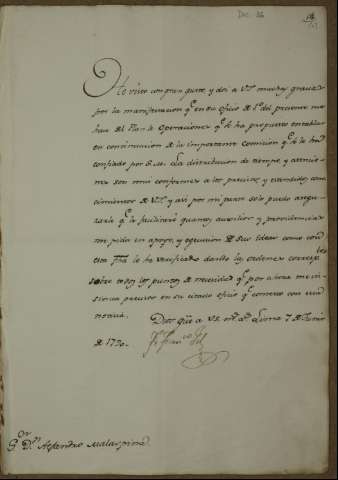 He visto con gran gusto, y doi a V.S. muchas gracias
por la manifestacion q.e en su Oficio de 1.o del presente me
hace del Plan de Operaciones q.e se ha propuesto entablar
en continuacion de la importante Comision q.e se le ha
confiado por S.M. La distribucion de tiempo, y atencio-
nes son mui conformes a los precisos, y extendidos cono-
cimientos de V.S. y asi por mi parte solo puedo asegu-
rarle q.e le facilitaré quantos auxilios, y providencias
me pida en apoyo, y egecucion de sus ideas como con
esta fha. le he verificado dando las ordenes correspon.tes
sobre todos los puntos de necesidad q.e por ahora me in-
sinua precisos en su citado oficio q.e contexto con esta
Dios gue. a V.S. m.s a.s Lima 7 de Junio
de 1790.
S.or D.n Alexandro Malaspina.